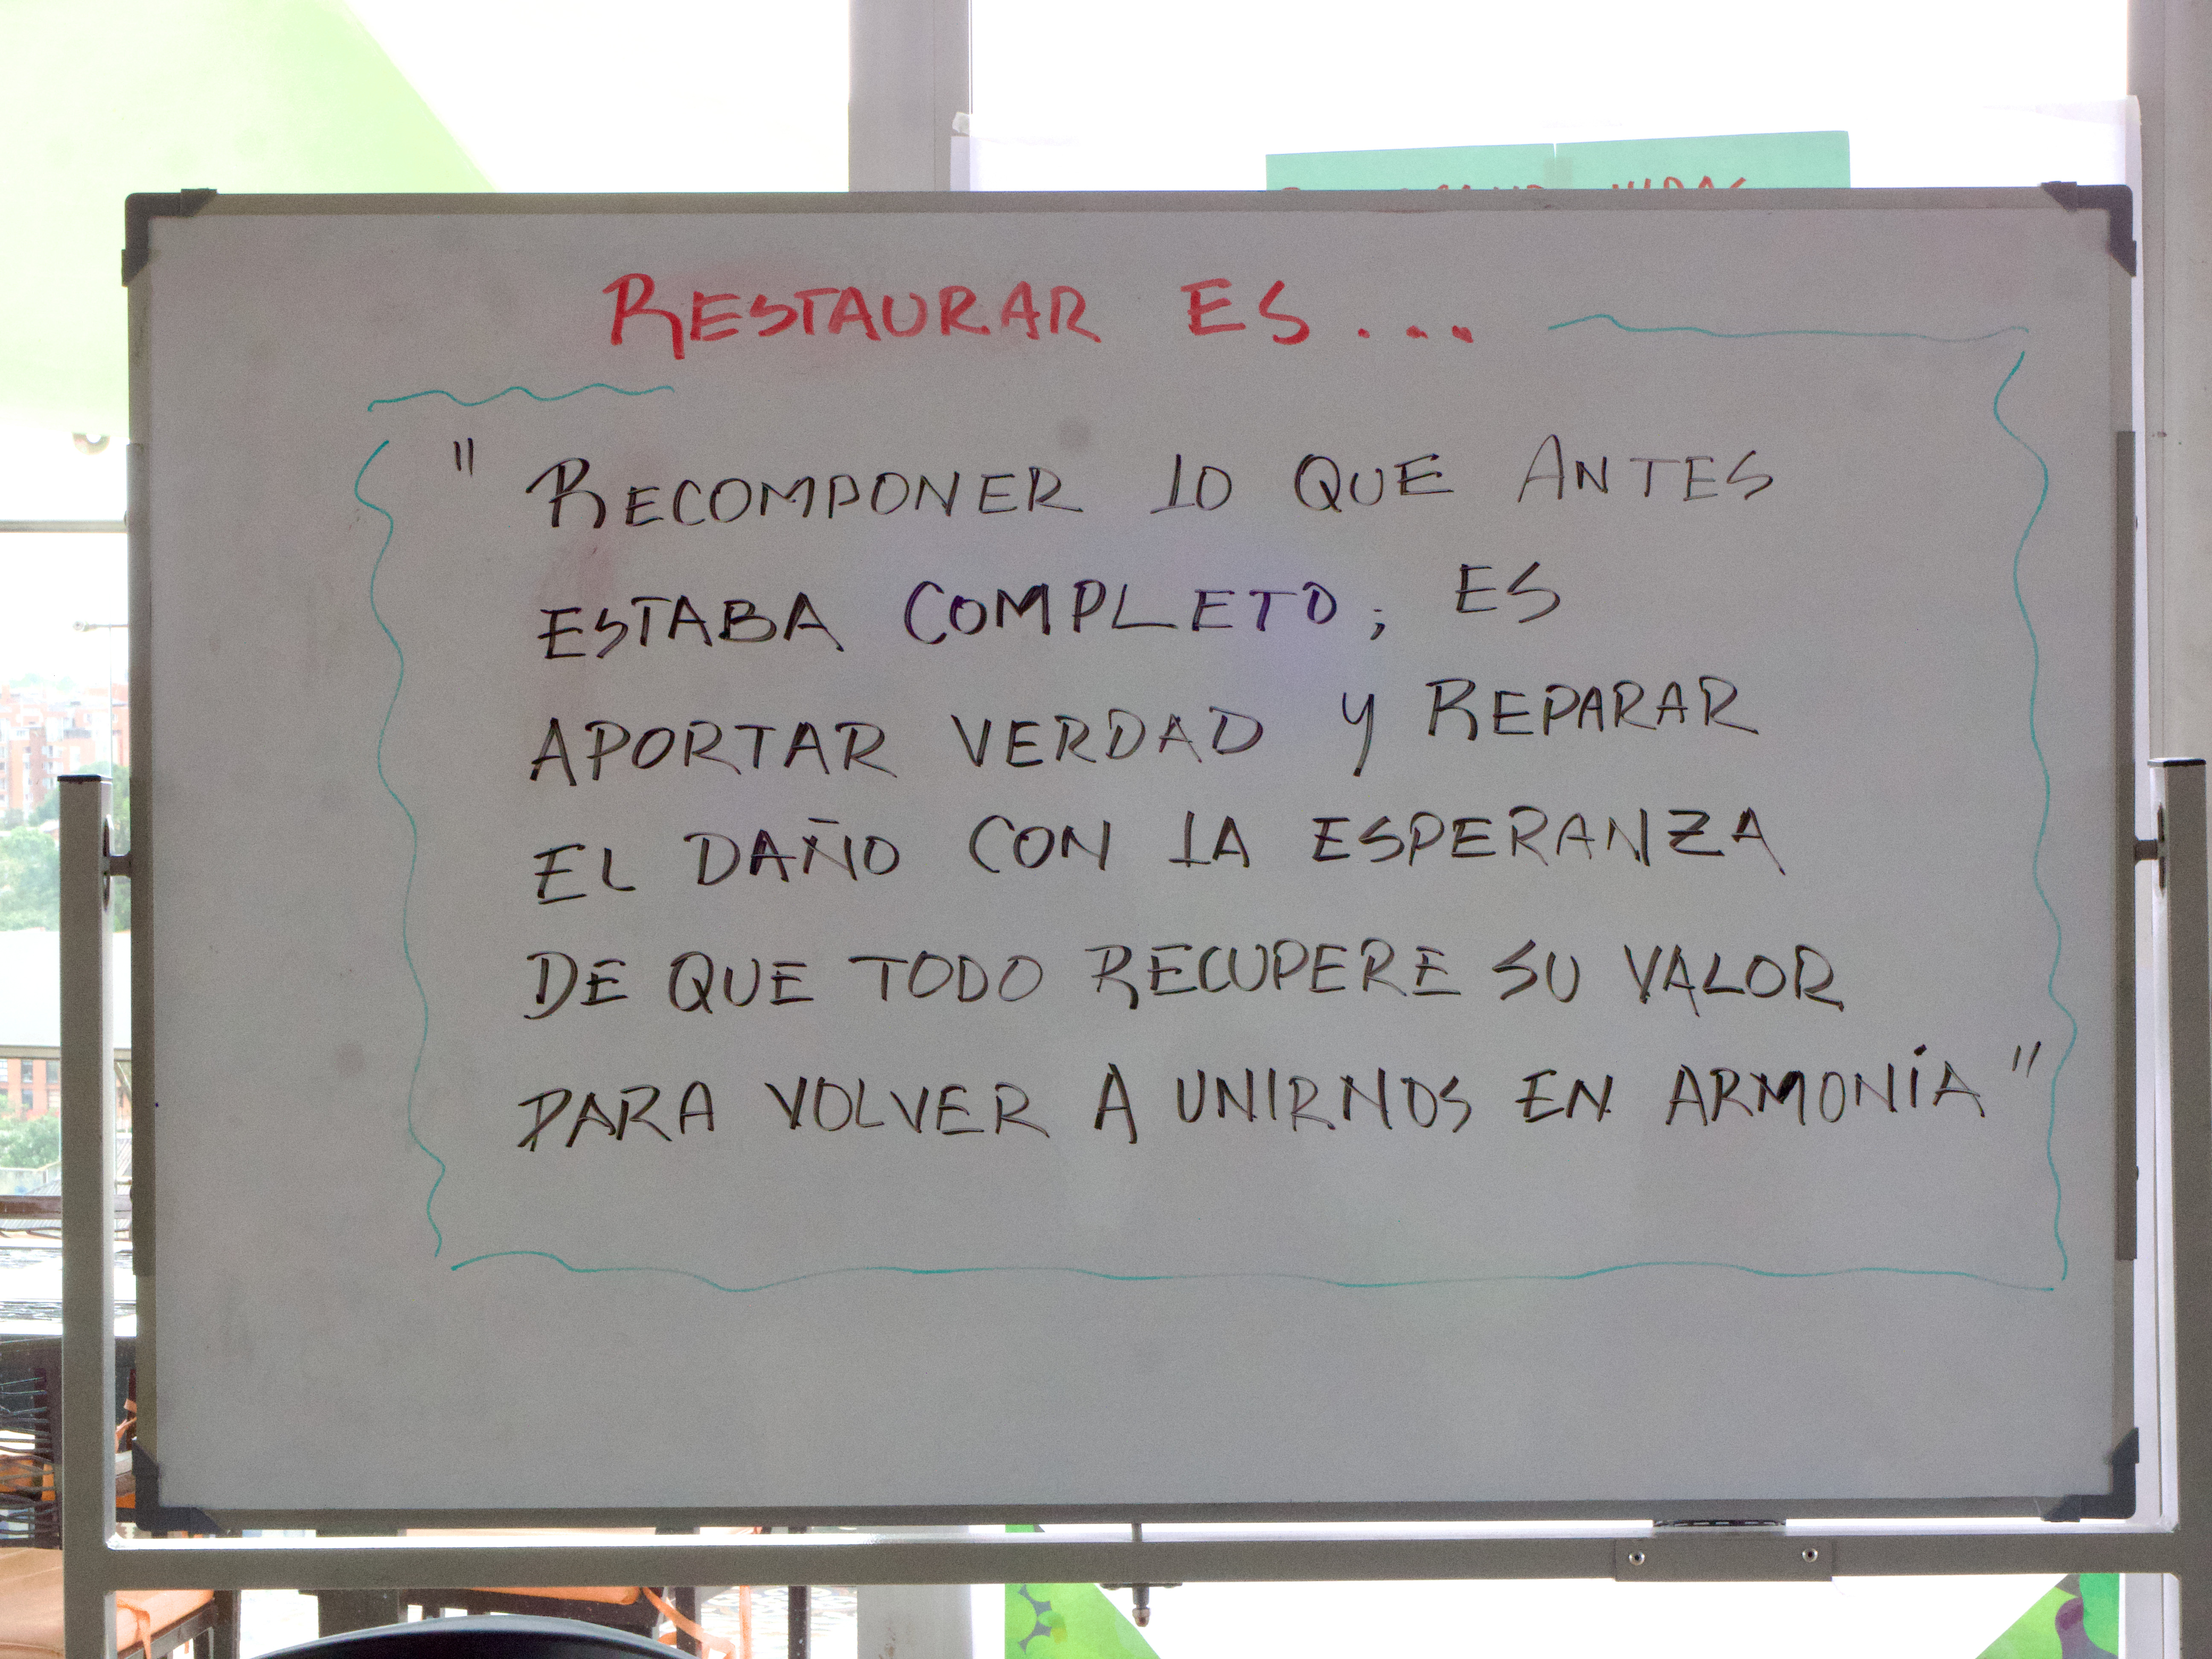 RESTAURAR ES...
" RECOMPONER LO QUE ANTES
ESTABA COMPLETO; ES
APORTAR VERDAD Y REPARAR
EL DAÑO CON LA ESPERANZA
DE QUE TODO RECUPERE SU VALOR
PARA VOLVER A UNIRNOS EN ARMONÍA "